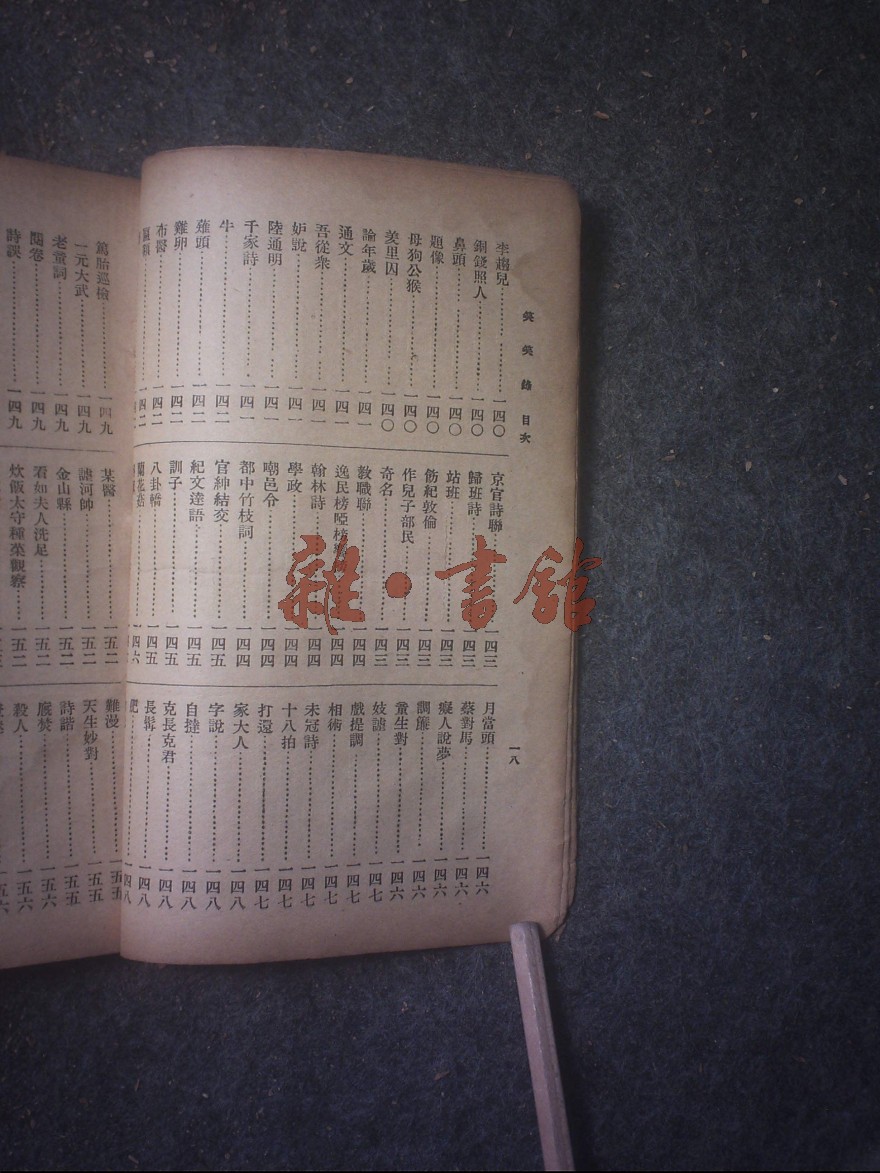 笑笑錄 目次
一八
李趙兒⋯⋯一四〇
銅錢照人⋯⋯一四〇
鼻頭⋯⋯一四〇
題像⋯⋯一四〇
母狗公猴⋯⋯一四〇
羑里囚⋯⋯一四〇
論年歲⋯⋯一四一
通文⋯⋯一四一
吾從衆⋯⋯一四一
妒說⋯⋯一四一
陸通明⋯⋯一四一
千家詩⋯⋯一四一
牛⋯⋯一四二
薙頭⋯⋯一四二
雞卵⋯⋯一四二
布醫⋯⋯一四二
京官詩聯⋯⋯一四三
歸班詩⋯⋯一四三
站班⋯⋯一四三
飭紀敦倫⋯⋯一四三
作兒子部民⋯⋯一四三
奇名⋯⋯一四三
教職聯⋯⋯一四四
逸民榜啞榜
翰林詩⋯⋯一四四
學政⋯⋯一四四
嘲邑令⋯⋯一四四
都中竹枝詞⋯⋯一四四
官紳結交⋯⋯一四五
紀文達語⋯⋯一四五
訓子⋯⋯一四五
八卦橋⋯⋯一四五
月當頭⋯⋯一四六
蔡對馬⋯⋯一四六
癡人說夢⋯⋯一四六
調簾⋯⋯一四六
童生對⋯⋯一四六
妓謔⋯⋯一四七
戲提調⋯⋯一四七
相術⋯⋯一四七
未冠詩⋯⋯一四七
十八拍⋯⋯一四七
打還⋯⋯一四七
家大人⋯⋯一四八
字說⋯⋯一四八
自撻⋯⋯一四八
克長克君⋯⋯一四八
長髯⋯⋯一四八
肥⋯⋯一四八
篤胎巡檢⋯⋯一四九
一元大武⋯⋯一四九
老童詞⋯⋯一四九
閱卷⋯⋯一四九
詩誤⋯⋯一四九
某醫⋯⋯一五二
謔河帥⋯⋯一五二
金山縣⋯⋯一五二
看如夫人洗足⋯⋯一五二
炊飯太守種菜觀察
難漫⋯⋯一五五
天生妙對⋯⋯一五五
詩諧⋯⋯一五五
殺人⋯⋯一五六
雜·書館